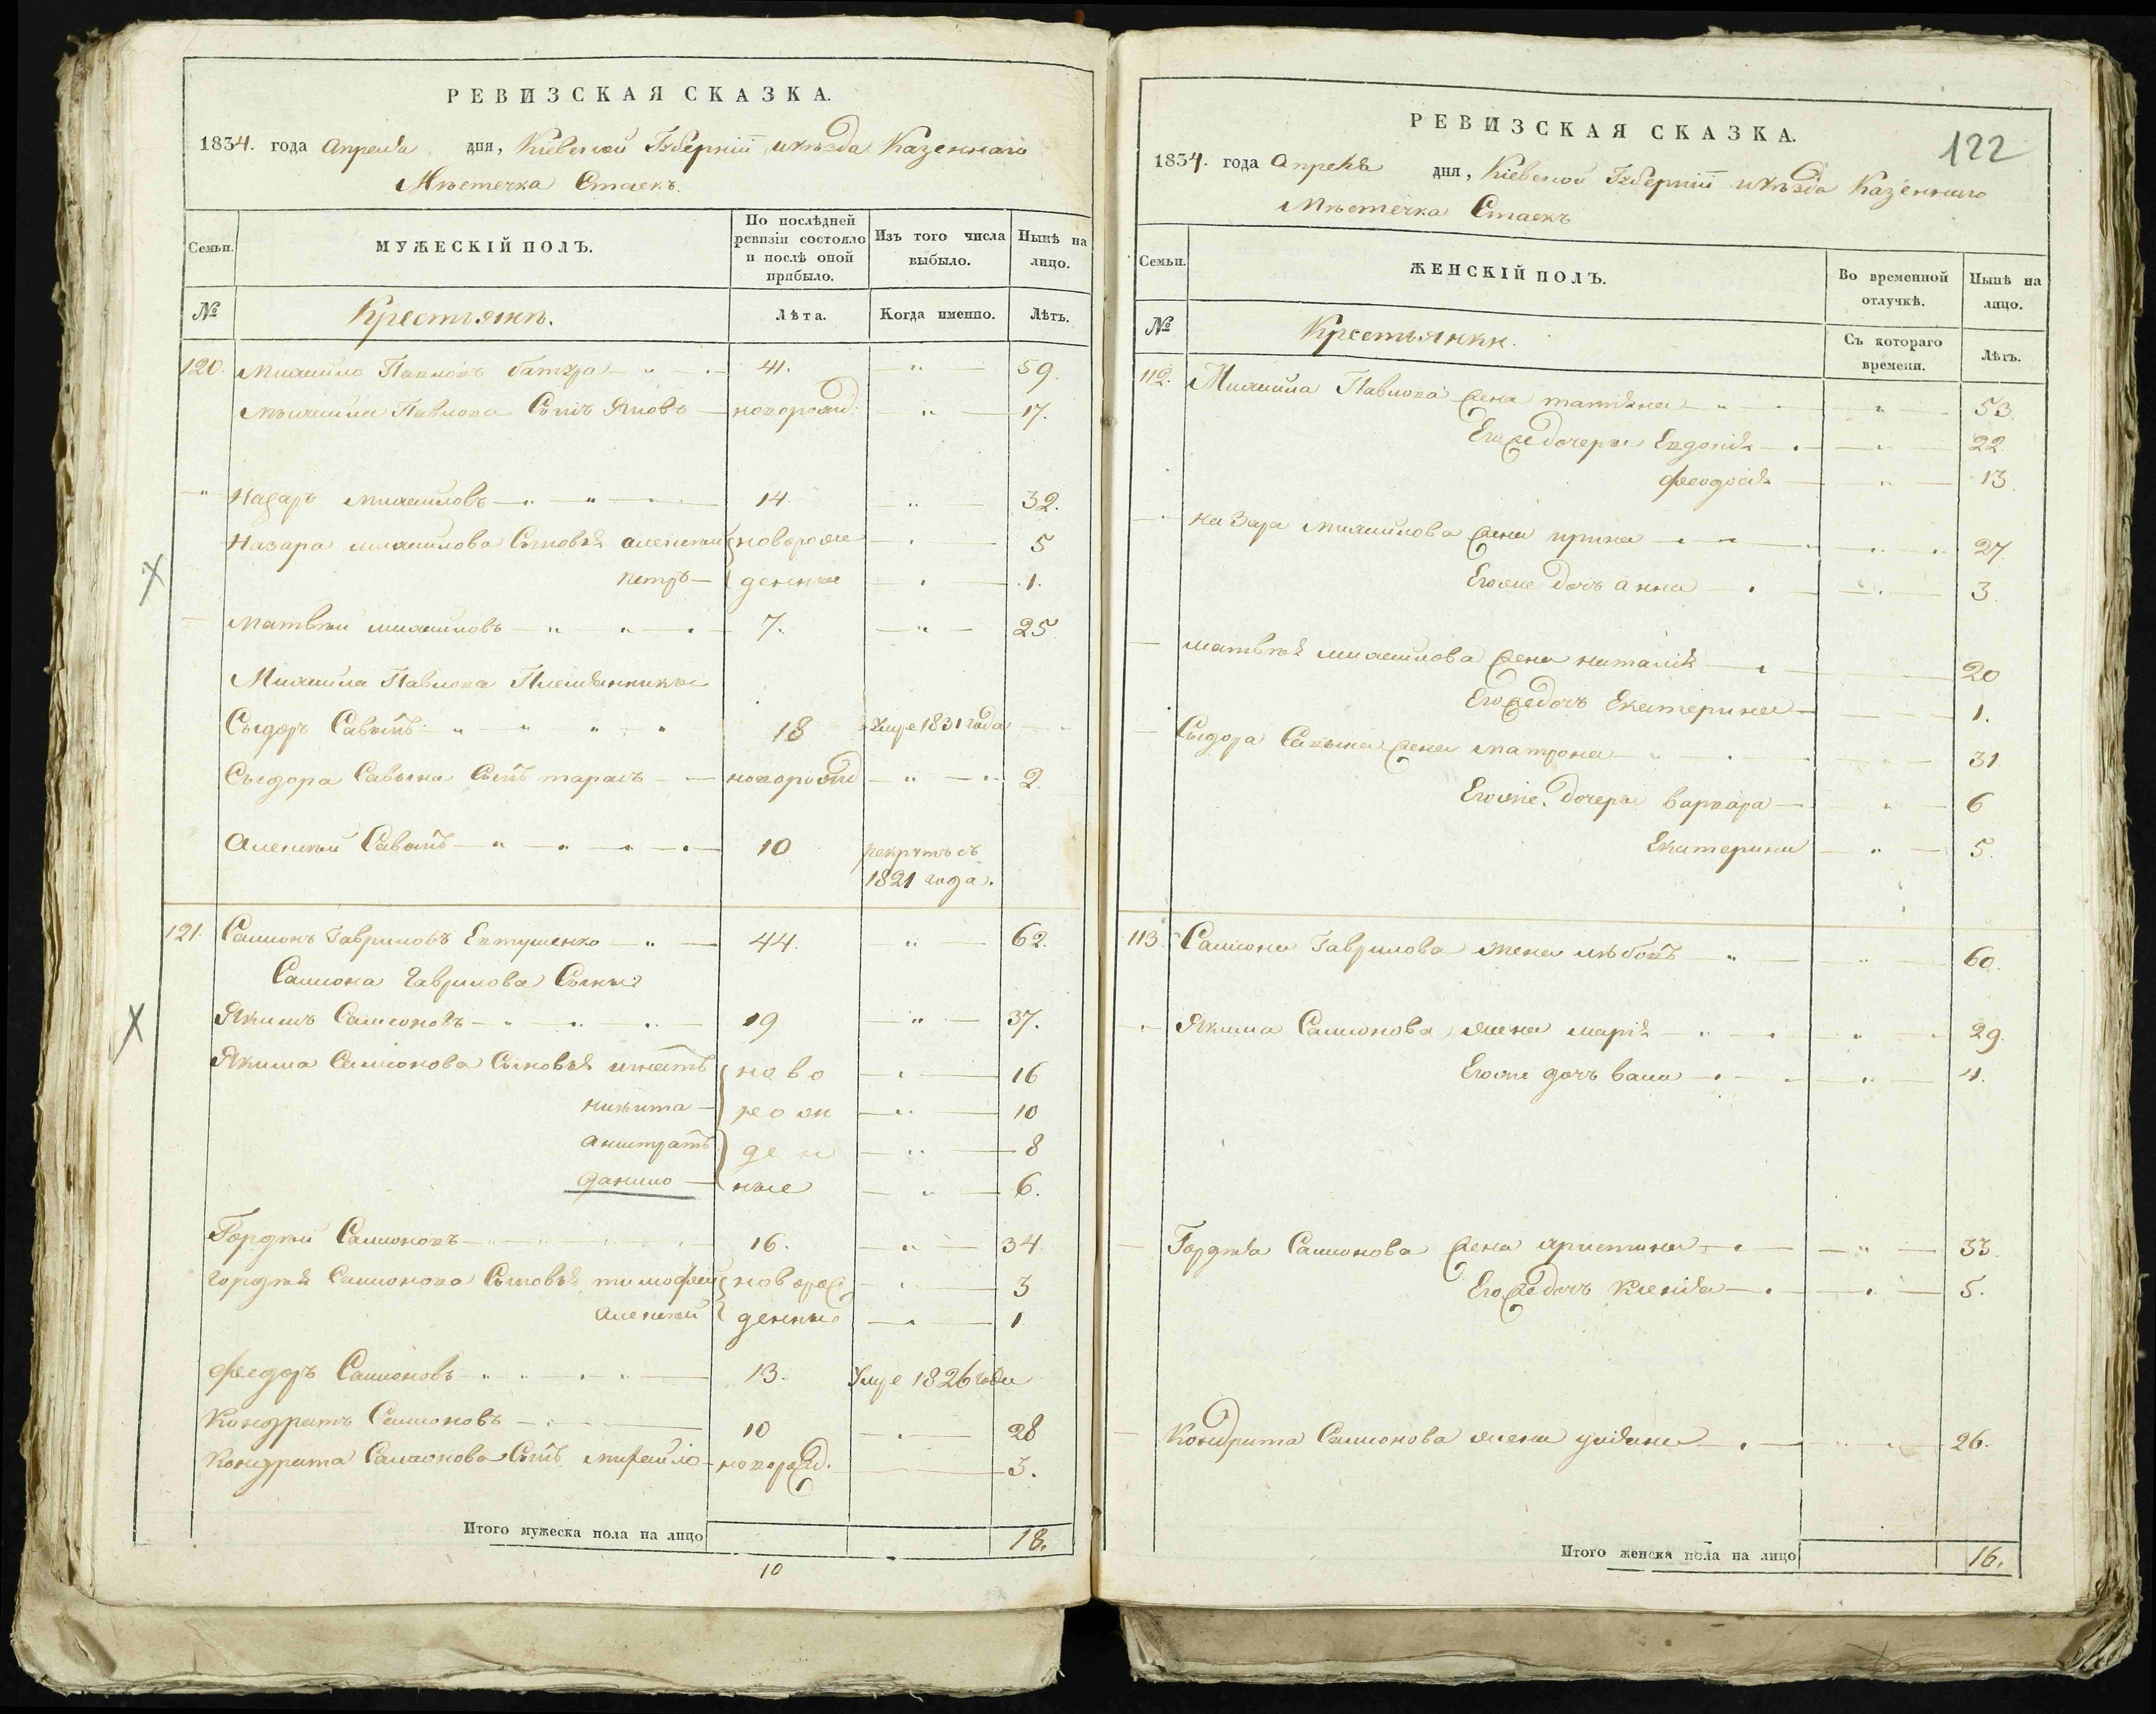 РЕВИЗСКАЯ СКАЗКА.
1834. года Апреля дня, Кіевской Губерніи и уѣзда Казеннаго
Мѣстечка Стаекъ.
Семьи. МУЖЕСКІЙ ПОЛЪ. По послѣдней ревизіи состояло и послѣ оной прибыло. Изъ того числа выбыло. Нынѣ на лицо.
№ Крестьянѣ. Лѣта. Когда именно. Лѣтъ.
120. Михайло Павловъ 41. 59.
Михайла Павлова Сынъ Яковъ новорожд: 17.
Назаръ Михайловъ 14. 32.
Назара михайлова Сыновья алексѣй новорож 5
петръ денные 1.
Матвѣй михайловъ 7. 25.
Михайла Павлова Племянники
Сыдоръ Саввинъ 18 Умре 1831 года
Сыдора Саввина Сынъ тарасъ новорожд 2.
Алексѣй Саввинъ 10 рекрутъ съ
1821 года.
121. Самсонъ Гавриловъ Евтушенко 44. 62.
Самсона Гаврилова Сыны
Якимъ Самсоновъ 19 37.
Якима Самсонова Сыновья игнатъ ново 16
никита рож 10
ден 8
данило ные 6.
Гордѣй Самсоновъ 16. 34
Гордѣя Самсонова Сыновья тимофей новорож 3
Алексѣй денные 1
Феодоръ Самсоновъ 13. Умре 1826 года
Кондратъ Самсоновъ 10 28
Кондрата Самсонова Сынъ михайло новорожд. 3.
Итого мужеска пола на лицо 18.
10
122
РЕВИЗСКАЯ СКАЗКА.
1834. года Апреля дня, Кіевской Губерніи и уѣзда Казеннаго
Мѣстечка Стаекъ
Семьи. ЖЕНСКІЙ ПОЛЪ. Во временной отлучкѣ. Нынѣ на лицо.
№ Крстьянки. Съ котораго времени. Лѣтъ.
112. Михайла Павлова жена татияна 53.
Егоже дочери Евдокія 22.
феодосія 13
назара михайлова жена ирина 27.
Егоже дочъ анна 3.
матвѣя михайлова жена наталія 20
Егоже дочъ Екатерина 1.
Сыдора Саввина жена матрона 31.
Егоже дочери варвара 6
Екатерина 5.
113. Самсона Гаврилова жена 60.
Якима Самсонова жена марія 29.
Егоже дочъ 4.
Гордѣя Самсонова жена христина 33.
Егоже дочъ 5.
Кондрата Самсонова жена уліяна 26.
Итого женска пола на лицо 16.